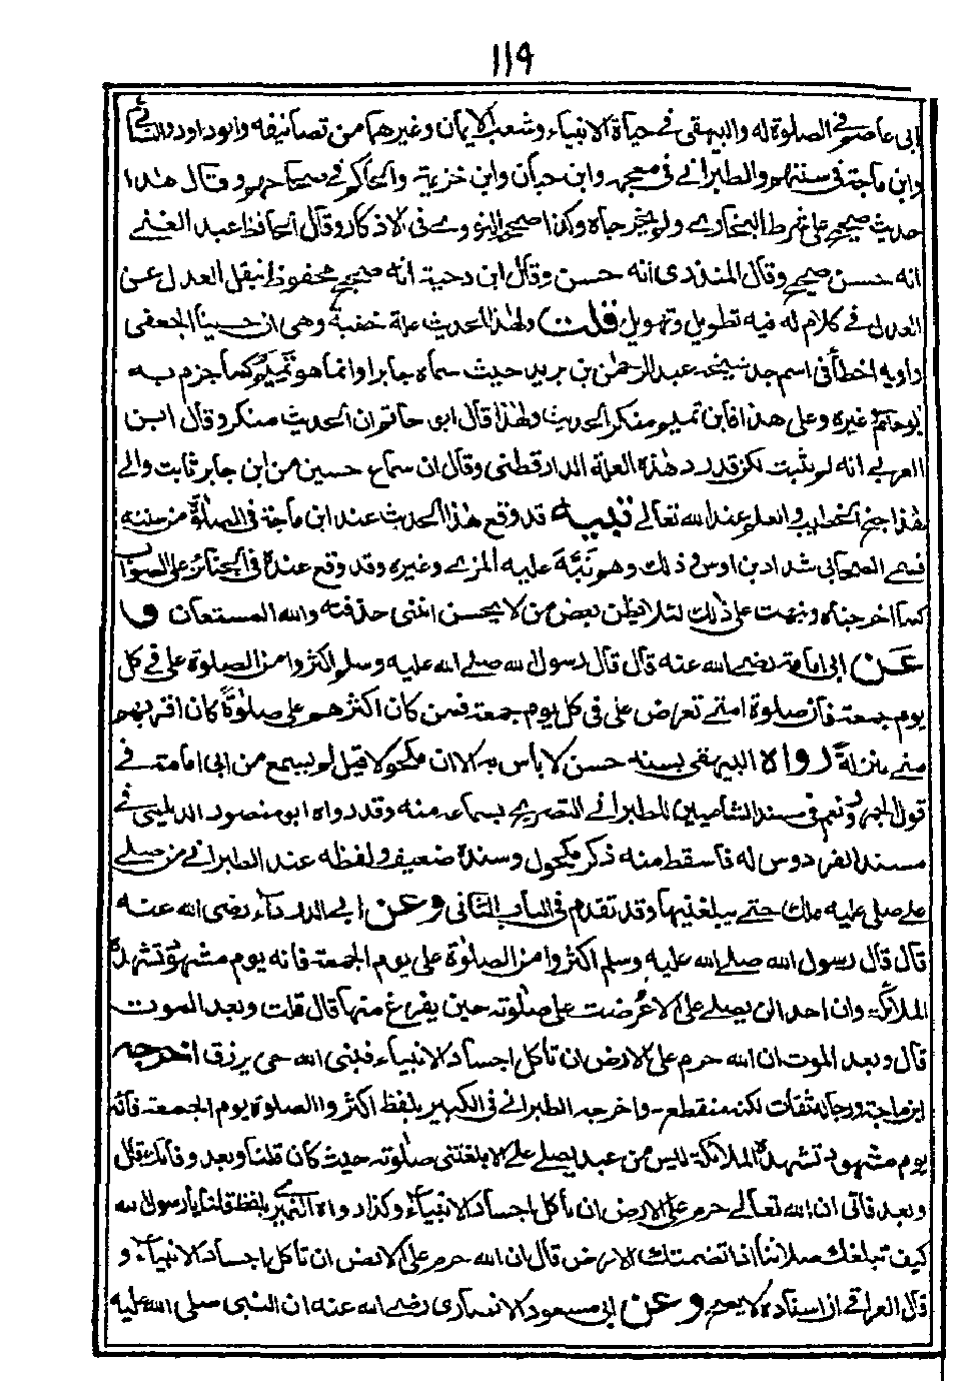 ١١٩
ابى عاصم فى الصلوة له والبيهقى فى حياة الانبياء وشعب الايمان وغيرهما من تصانيفه وابوداود والنسائى
وابن ماجة فى سننهم والطبرانى فى معجمه وابن حبان وابن خزيمة والحاكم فى صحاحهم وقال هذا
حديث صحيح على شرط البخارى ولم يخرجاه وكذا صححه النووى فى الاذكار وقال الحافظ عبد الغنى
انه حسن صحيح وقال المنذرى انه حسن وقال ابن دحية انه صحيح محفوظ بنقل العدل عن
العدل فى كلام له فيه تطويل وتهويل قلت ولهذا الحديث علة خفية وهى ان حسينا الجعفى
راويه اخطأ فى اسم جد شيخه عبد الرحمن بن يزيد حيث سماه جابرا وانما هو تميم كما جزم به
ابو حاتم وغيره وعلى هذا فابن تميم منكر الحديث ولهذا قال ابى حاتم ان الحديث منكر وقال ابن
العربى انه لم يثبت لكن قدرد هذه العلة الدارقطنى وقال ان سماع حسين من ابن جابر ثابت والى
هذا جنح الخطيب والعلم عند الله تعالى تنبيه قد وقع هذا الحديث عند ابن ماجة فى الصلوة من سننه
فسمى الصحابى شداد بن اوس وذلك وهم نَبَّهَ عليه المزى وغيره وقد وقع عنده فى الجنائز على الصواب
كما اخرجناه ونبهت على ذلك لئلا يظن بعض من لا يحسن اننى حذفته والله المستعان و
عن ابى امامة رضى الله عنه قال قال رسول الله صلى الله عليه وسلم اكثروا من الصلوة على فى كل
يوم جمعة فان صلوة امتى تعرض على فى كل يوم جمعة فمن كان اكثرهم على صلوةً كان اقربهم
منى منزلة رواه البيهقى بسند حسن لا بأس به الا ان مكحولا قيل لم يسمع من ابى امامة فى
قول الجمهور نعم فى مسند الشاميين للطبرانى التصريح بسماعه منه وقد رواه ابو منصور الديلمى فى
مسند الفردوس له فاسقط منه ذكر مكحول وسنده ضعيف ولفظه عند الطبرانى من صلى
على صلى عليه ملك حتى يبلغنيها وقد تقدم فى الباب الثانى وعن ابى الدرداء رضى الله عنه
قال قال رسول الله صلى الله عليه وسلم اكثروا من الصلوة على يوم الجمعة فانه يوم مشهود تشهده
الملائكة وان احدا لن يصلى على الا عُرضت على صلوته حين يفرغ منها قال قلت وبعد الموت
قال وبعد الموت ان الله حرم على الارض ان تأكل اجساد الانبياء فنبى الله حى يرزق اخرجه
ابن ماجة ورجاله ثقات لكنه منقطع واخرجه الطبرانى فى الكبير بلفظ اكثروا الصلوة يوم الجمعة فانه
يوم مشهود تشهده الملائكة ليس من عبد يصلى على الا بلغتنى صلوته حيث كان قلنا وبعد وفاتك قال
وبعد وفاتى ان الله تعالى حرم على الارض ان تأكل اجساد الانبياء وكذا رواه النميرى بلفظ قلنا يا رسول الله
كيف تبلغك صلاتنا اذا تضمنتك الارض قال ان الله حرم على الارض ان تأكل اجساد الانبياء و
قال العراقى ان اسناده لا يصح وعن ابى مسعود الانصارى رضى الله عنه ان النبى صلى الله عليه